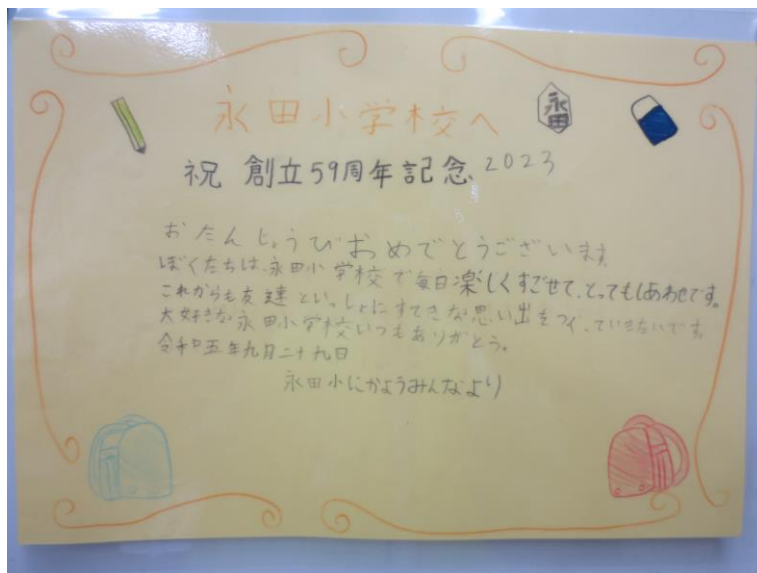 永田小学校へ
永田
祝 創立59周年記念 2023
おたんじょうびおめでとうございます
ぼくたちは、永田小学校で毎日楽しくすごせて、とってもしあわせです。
これからも友達といっしょにすてきな思い出をつくっていきたいです。
大好きな永田小学校いつもありがとう。
令和五年九月二十九日
永田小にかようみんなより